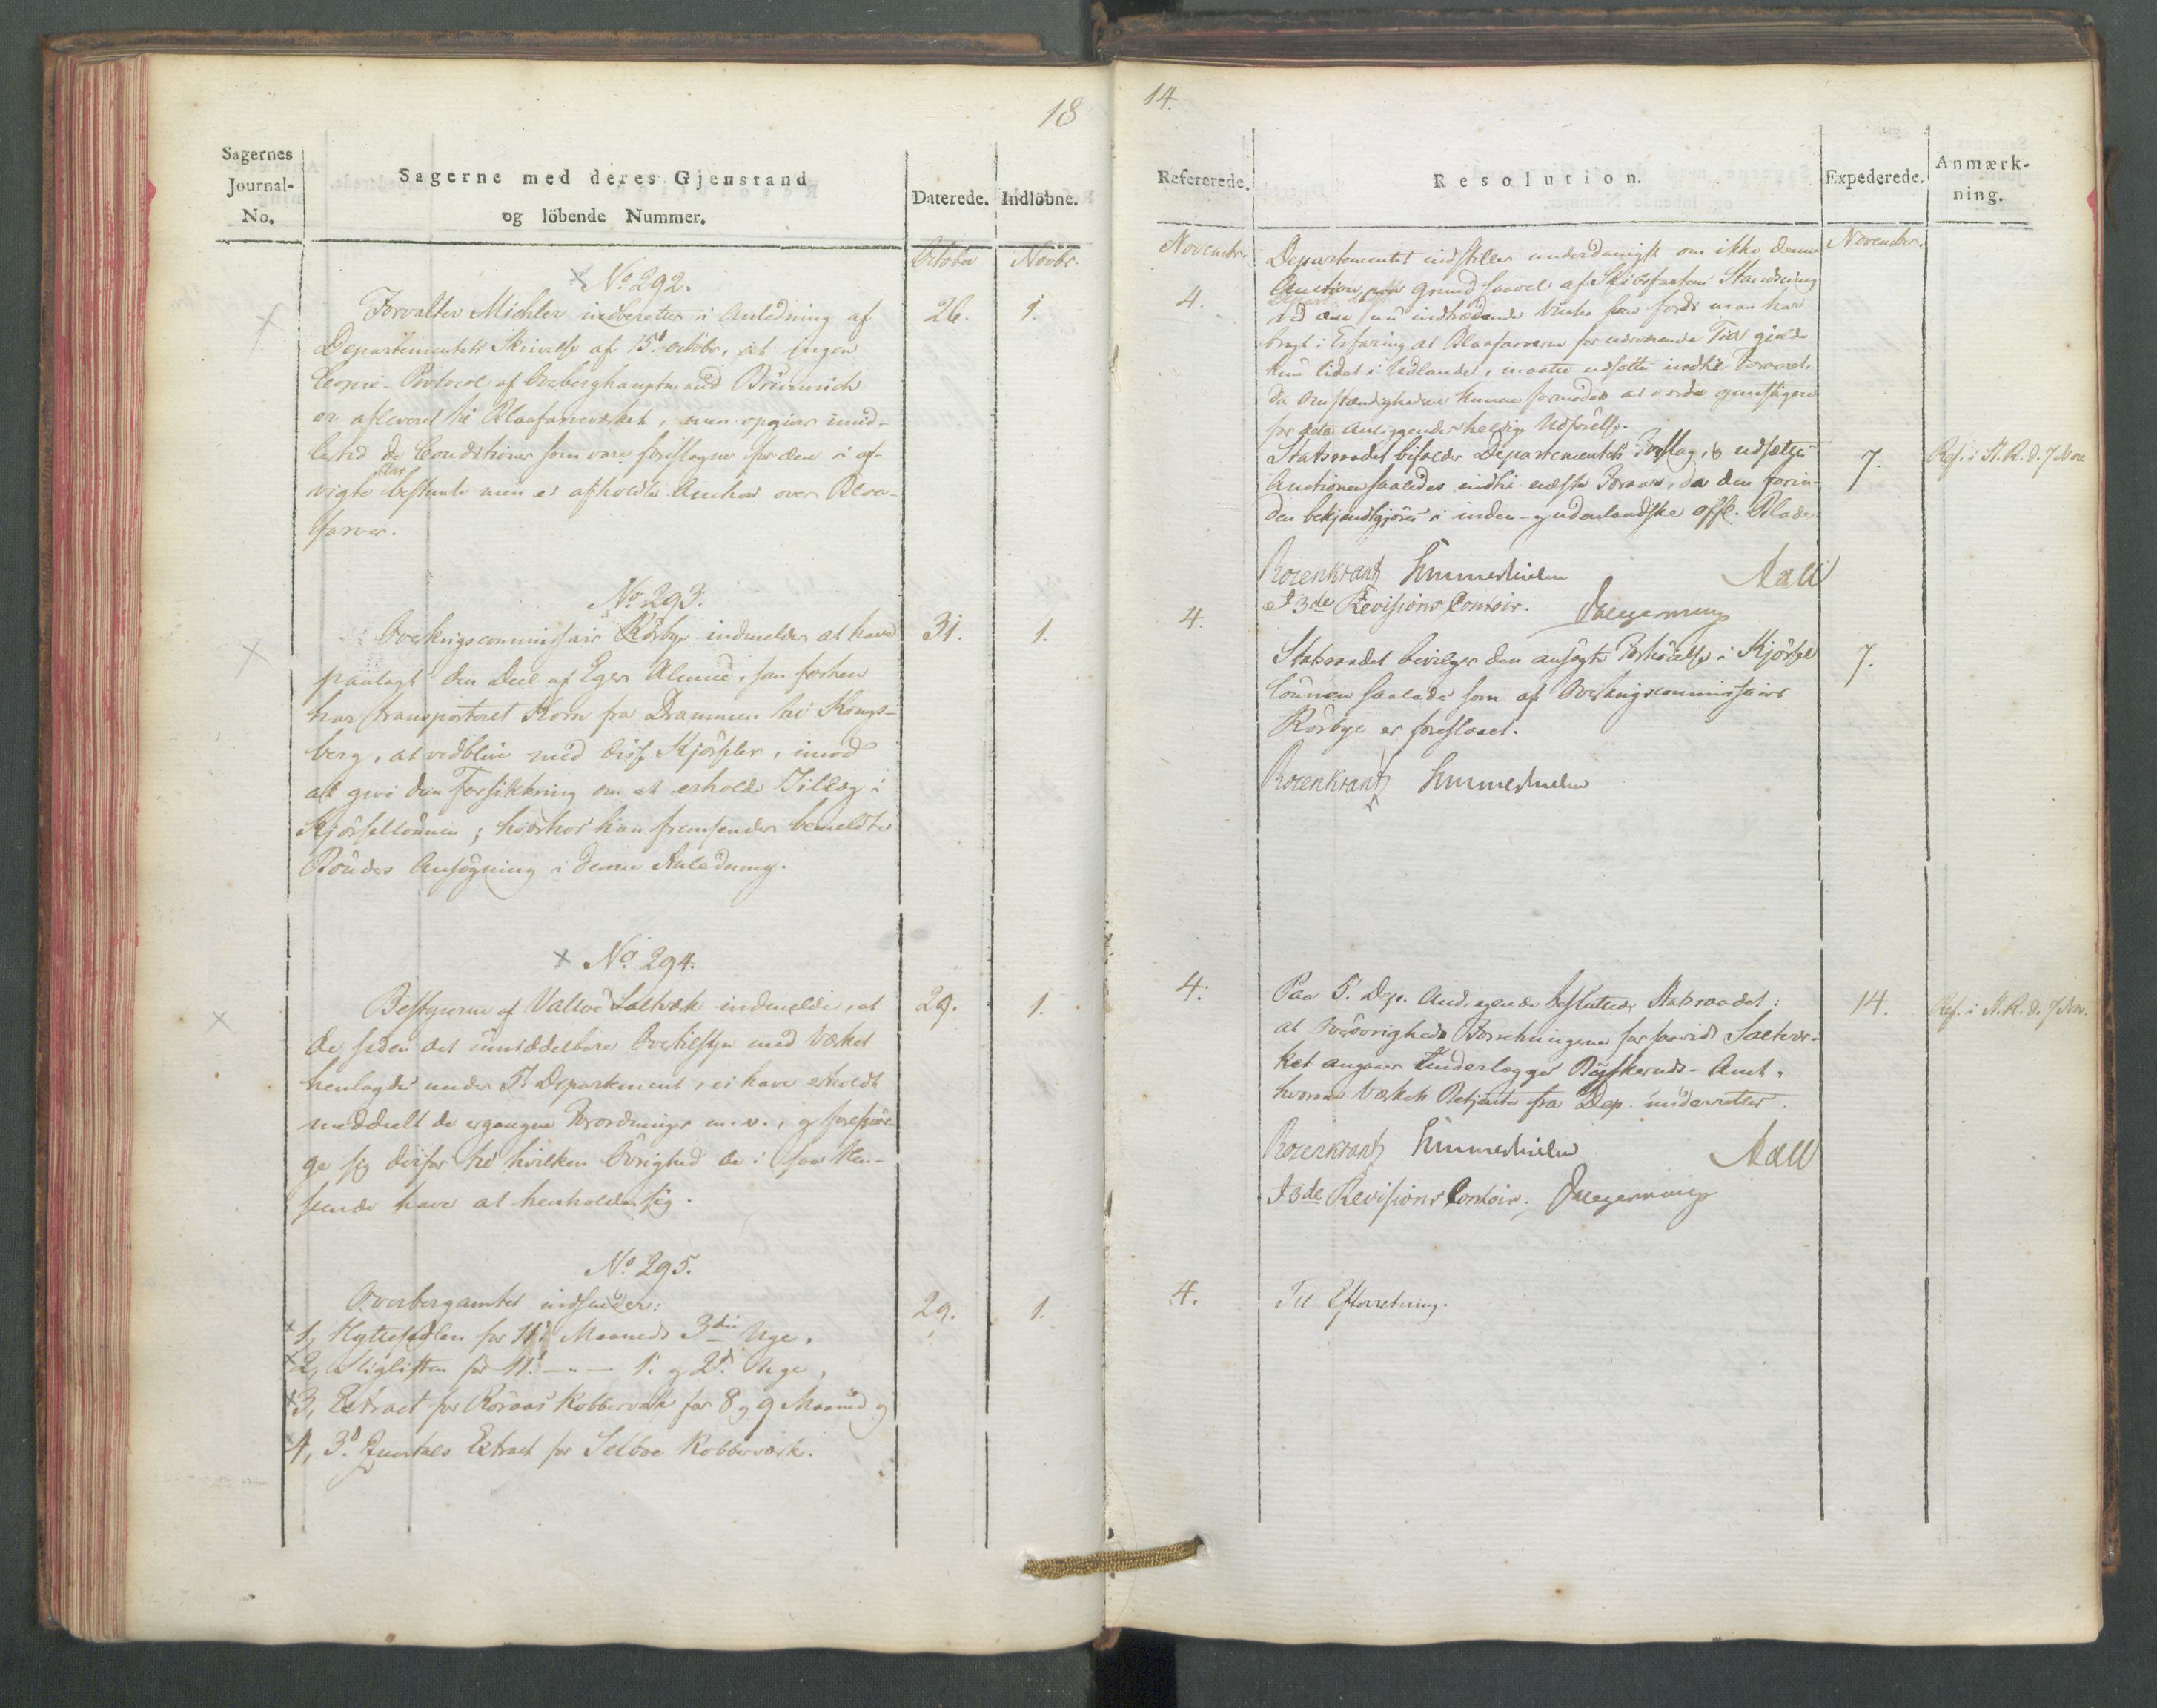 18
Sagernes
Journal-
No.
Sagerne med deres Gjenstand
og löbende Nummer.
Daterede.
Indlöbne.
October
Novbr.
No 292.
Forvalter Michler indberetter i Anledning af
26.
1.
Departementets Skrivelse af 15d. october, at ingen
Copie-Protocol af Overberghauptmand Brünnich
er afleveret til Blaafarveværket, men opgiver imid-
lertid de Conditioner som vare foreslagne for den i af-
vigte Aar bestemte men ei afholdte Auction over Blaa-
farver.
No 293.
Overkrigscommissair Rörbye indmelder at have
31.
1.
paalagt den Deel af Eger Almue, som forhen
har transporteret Korn fra Drammen til Kongs-
berg, at vedblive med disse Kjörsler, imod
at give dem Forsikkring om at erholde Tillæg i
Kjörsellönnen; hvorhos han fremsender bemeldte
Bönders Ansögning i denne Anledning.
No 294.
Bestyrerne af Valloe Saltværk indmelde, at
29.
1.
de siden det umiddelbare Overtilsyn med Værket
henlagdes under 5t. Departement, ei have erholdt
meddeelt de ergangne Forordninger m. v., og forespör-
ge sig derfor til hvilken Övrighed de i saa Hen-
seende have at henholde sig.
No 295.
Overbergamtet indsender:
29.
1.
1, Hyttesedlen for 11t. Maaneds 3die Uge,
2, Sliglisten for 11t. — " — 1t. og 2d. Uge,
3, Extract for Röraas Kobberværk for 8 og 9 Maaned og
4, 3d. Quartals Extract for Selboe Kobberværk.
14.
Refererede.
Resolution.
Expederede.
Anmærk-
ning.
Novembr.
November.
Departementet indstiller underdanigst om ikke denne
Auction paa Grund saavel af Skibsfartens Standsning
4.
ved den nu indtrædende Vinter som fordi man har
bragt i Erfaring at Blaafarverne for nærværende Tid gielde
kun lidet i Udlandet, maatte udsættes indtil Foraaret,
da Omstændighederne kunne formodes at vorde gunstigere
for dette Anliggendes heldige Udförelse.
Statsraadet bifalder Departementets Forslag, og udsættes
7.
Ref. i St. R. d. 7 Nov.
Auctionen saaledes indtil næste Foraar, da den forin-
den bekjendtgjöres i inden- og udenlandske offl. Blade
Rosenkrantz Sommerhielm Aall
I 3de Revisions Contoir.
4.
Statsraadet bevilger den ansögte Forhöielse i Kjörsel
7.
lönnen saaledes som af Overkrigscommissair
Rörbye er foreslaaet.
Rosenkrantz Sommerhielm
4.
Paa 5t. Dep. Andragende besluttede Statsraadet:
14.
Ref. i St. R. d. 7 Nov.
at Overövrigheds Forretningerne forsaavidt Saltvær-
ket angaaer underlægges Buskeruds-Amt,
hvorom Værkets Betjente fra Dep. underrettes.
Rosenkrantz Sommerhielm Aall
I 3de Revisions Contoir.
4.
Til Efterretning.